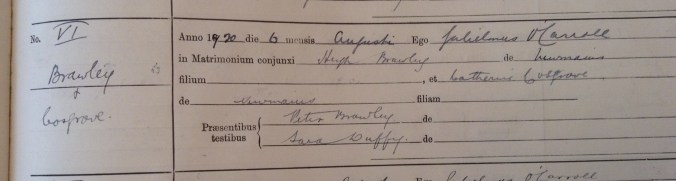 No. VI
Brawley
&
Cosgrove.
Anno 1920 die 6 mensis Augusti Ego Gulielmus O'Carroll
in Matrimonium conjunxi Hugh Brawley de Newmains
filium , et Catherine Cosgrove
de Newmains filiam
Præsentibus testibus
Peter Brawley de
Sara Duffy. de
O'Carroll